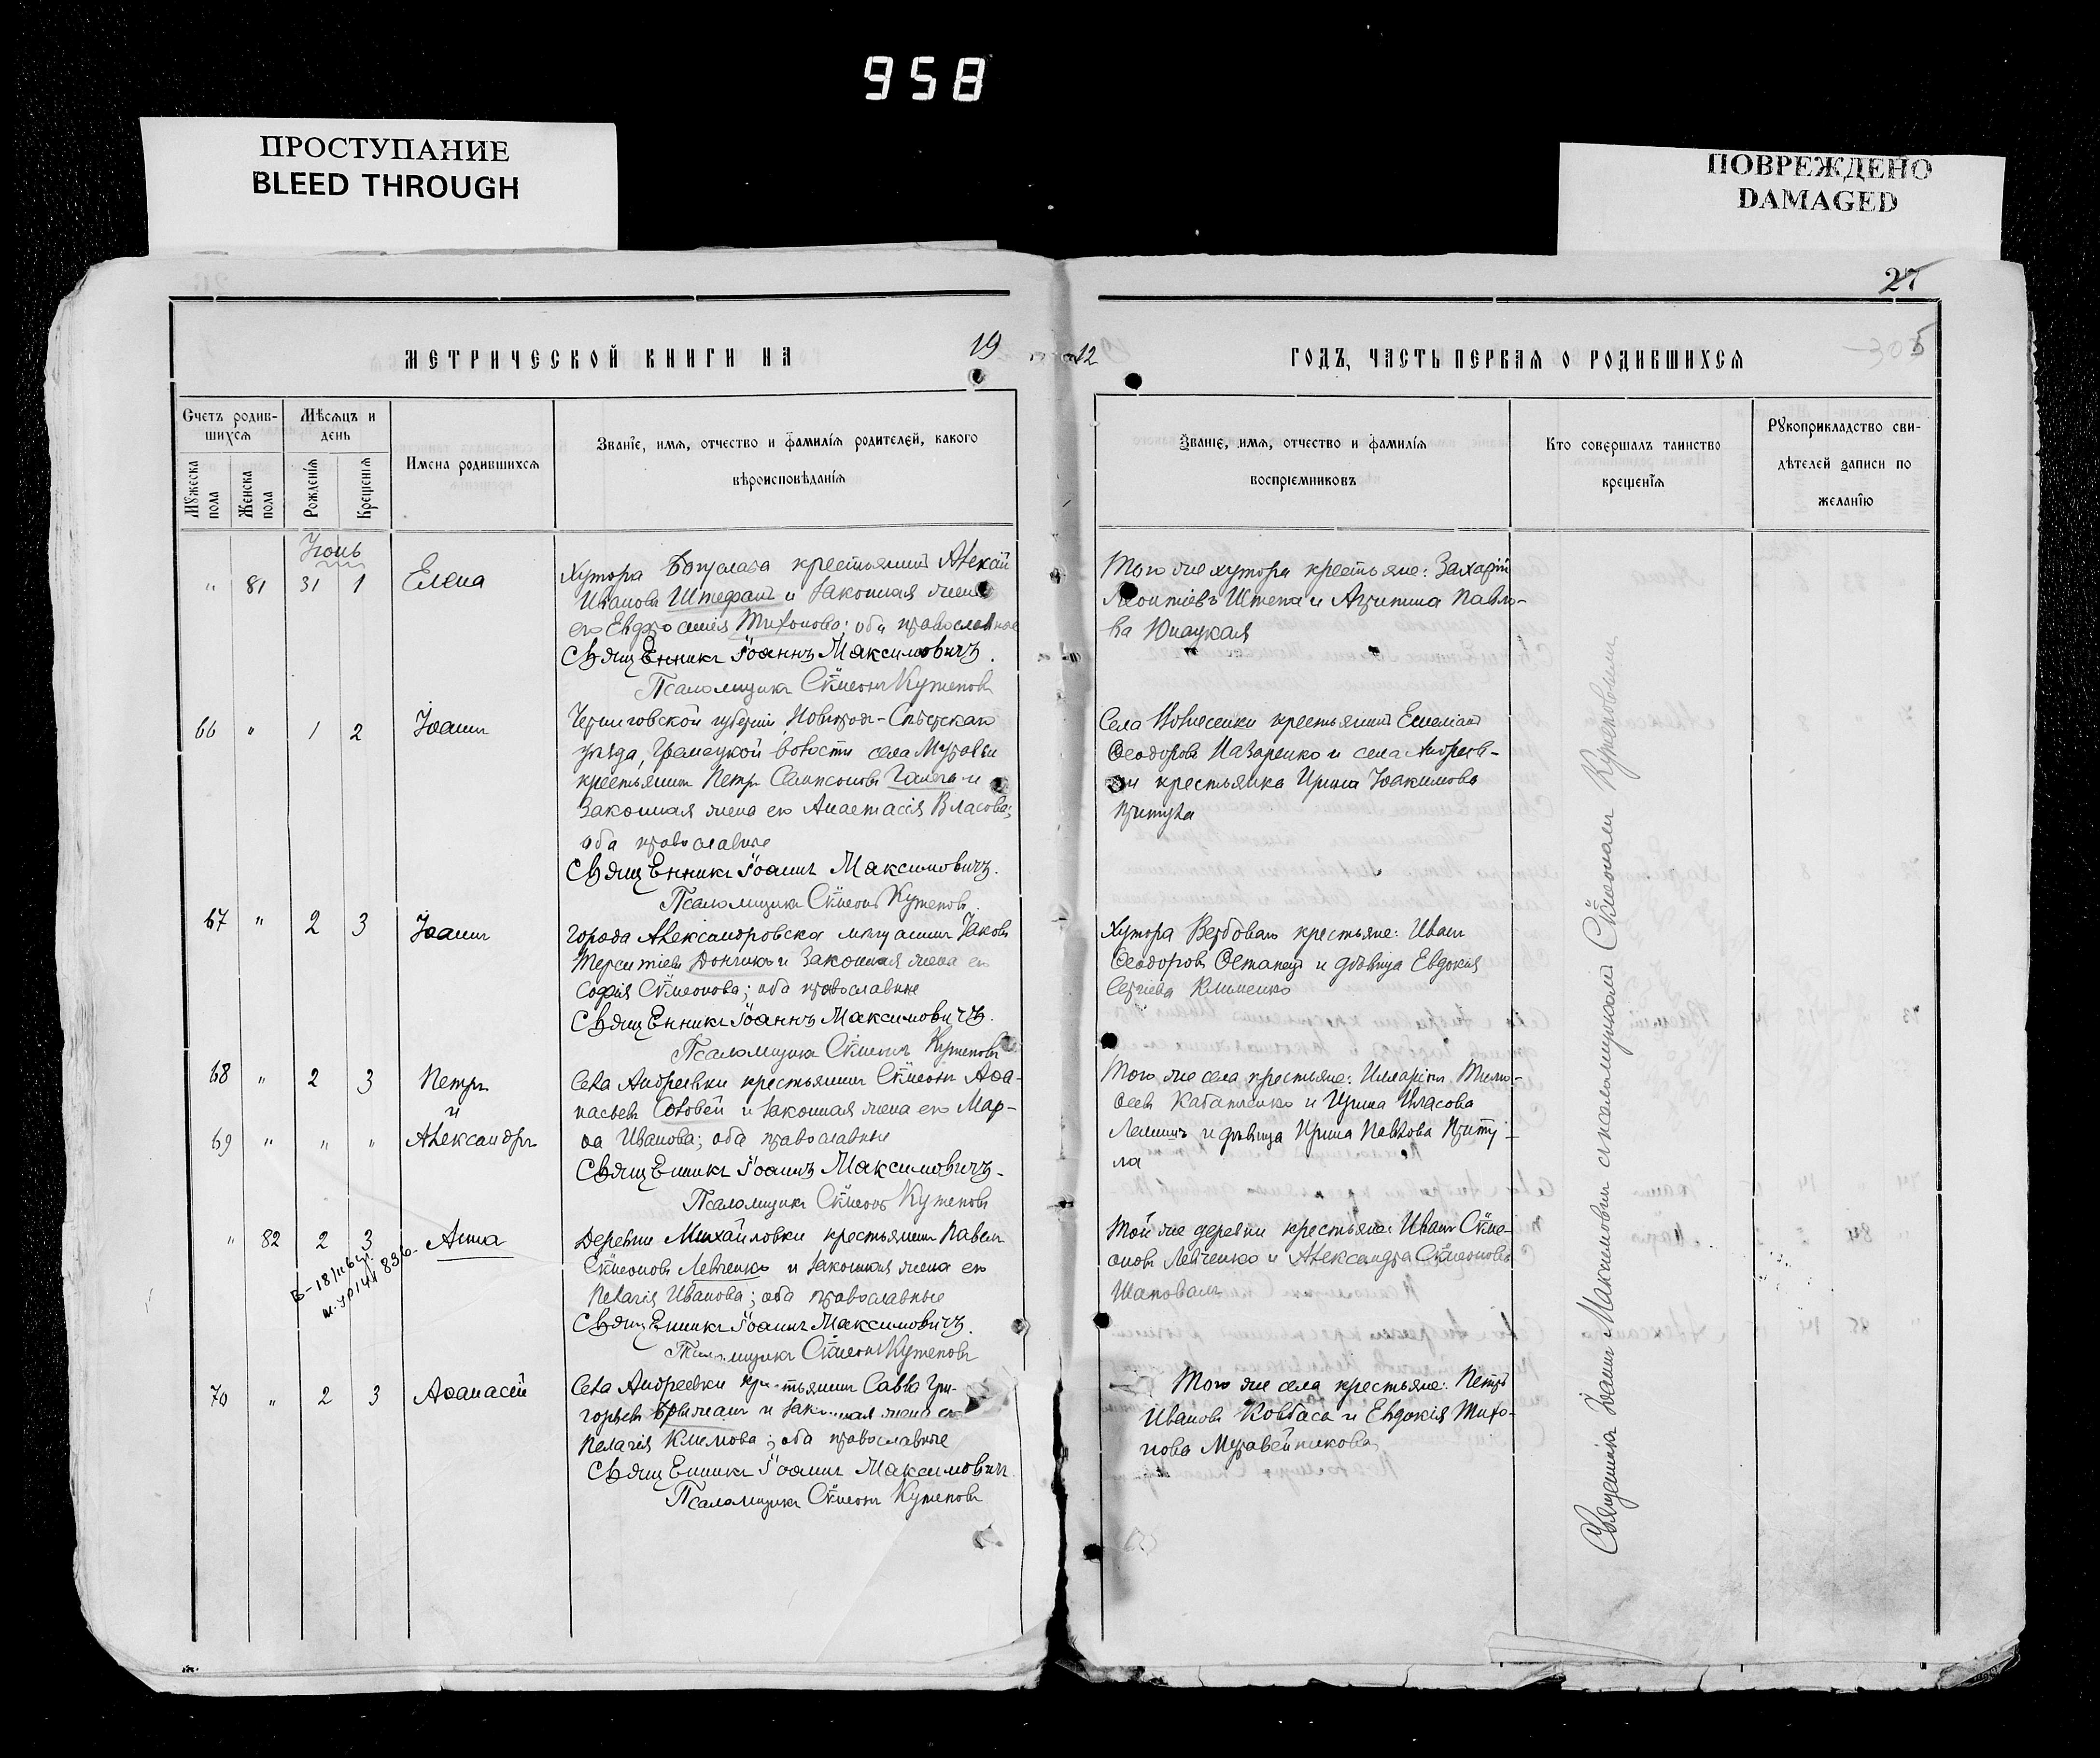 958
ПРОСТУПАНИЕ
BLEED THROUGH
ПОВРЕЖДЕНО
DAMAGED
27
305
МЕТРИЧЕСКОЙ КНИГИ НА 19
12 ГОДЪ, ЧАСТЬ ПЕРВАЯ О РОДИВШИХСЯ
Счетъ родив-
шихся
Мѣсяцъ и
день
Мужеска
пола
Женска
пола
Рожденія
Крещенія
Имена родившихся
Званіе, имя, отчество и фамилія родителей, какого
вѣроисповѣданія
Званіе, имя, отчество и фамилія
воспріемниковъ
Кто совершалъ таинство
крещенія
Рукоприкладство сви-
дѣтелей записи по
желанію
Іюнь
" 81 31 1 Елена
Хутора Богуслава крестьянинъ Алексій
Ивановъ Штефанъ и законная жена
его Евфросинія Тихонова; оба православные
Священникъ Іоаннъ Максимовичъ.
Псаломщикъ Сѵмеонъ Кутеповъ
Того же хутора крестьяне: Захарій
Леонтіевъ Штепа и Агрипина Павло-
ва
66 " 1 2 Іоаннъ
Черниговской губерніи, Новгород-Сѣверскаго
уѣзда, волости села
крестьянинъ Петръ Сампсоновъ и
законная жена его Анастасія Власова;
оба православные
Священникъ Іоаннъ Максимовичъ.
Псаломщикъ Сѵмеонъ Кутеповъ.
Села Вознесенки крестьянинъ Емеліанъ
Ѳеодоровъ Назаренко и села Андреев-
ки крестьянка Ирина Іоакимова
Притула
67 " 2 3 Іоаннъ
Города Александровска мѣщанинъ Іаковъ
Терентіевъ и законная жена его
Софія Сѵмеонова; оба православные
Священникъ Іоаннъ Максимовичъ.
Псаломщикъ Сѵмеонъ Кутеповъ
Хутора Вербоваго крестьяне: Иванъ
Ѳеодоровъ Остапецъ и дѣвица Евдокія
Сергіева Клименко
68 " 2 3 Петръ
и
69 " " " Александръ
Села Андреевки крестьянинъ Сѵмеонъ Аѳа-
насьевъ Соловей и законная жена его Мар-
ѳа Иванова; оба православные
Священникъ Іоаннъ Максимовичъ.
Псаломщикъ Сѵмеонъ Кутеповъ
Того же села крестьяне: Илларіонъ Тимо-
ѳеевъ и Ирина Власова
и дѣвица Ирина Павлова Приту-
ла
" 82 2 3 Анна
Деревни Михайловки крестьянинъ Павелъ
Сѵмеоновъ Левченко и законная жена его
Пелагія Иванова; оба православные
Священникъ Іоаннъ Максимовичъ.
Псаломщикъ Сѵмеонъ Кутеповъ
Той же деревни крестьяне: Иванъ Сѵме-
оновъ Левченко и Александра Сѵмеонова
Шаповалъ
70 " 2 3 Аѳанасій
Села Андреевки крестьянинъ Савва Гри-
горьевъ и законная жена его
Пелагія Климова; оба православные
Священникъ Іоаннъ Максимовичъ.
Псаломщикъ Сѵмеонъ Кутеповъ
Того же села крестьяне: Петръ
Ивановъ Ковбаса и Евдокія Тихо-
нова Муравейникова
Священникъ Іоаннъ Максимовичъ съ псаломщикомъ Сѵмеономъ Кутеповымъ